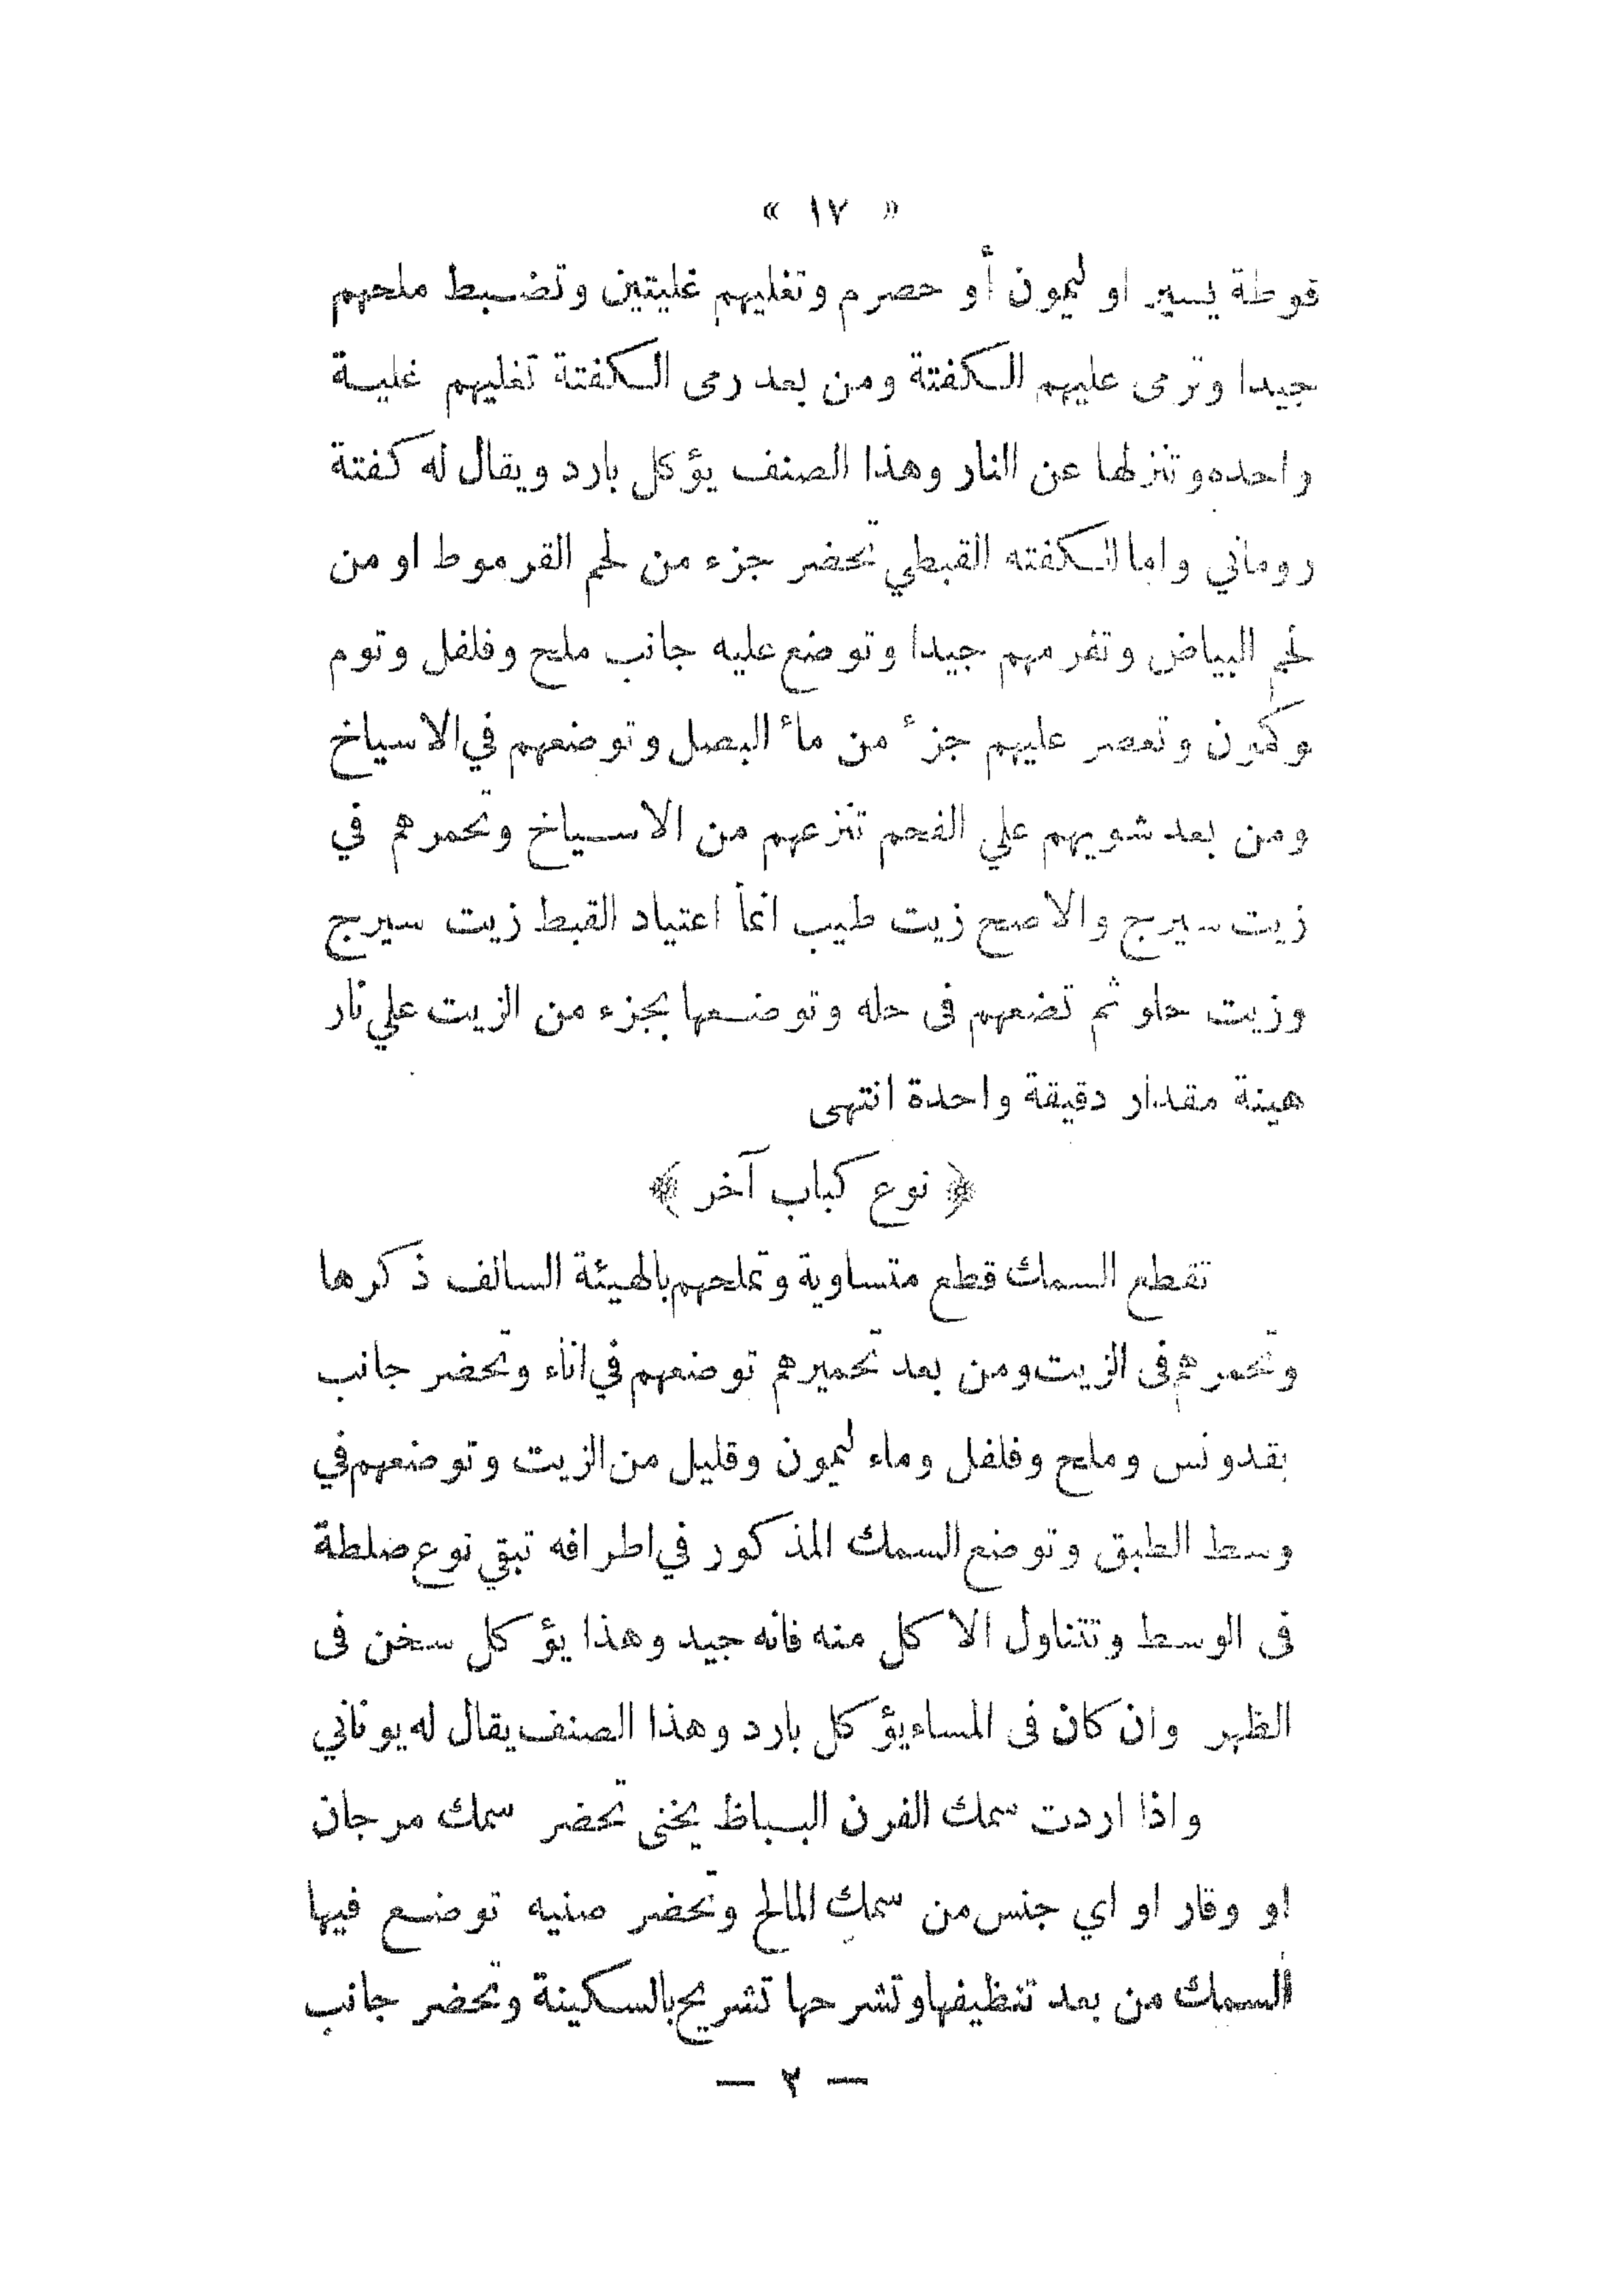 « ١٧ »
قوطة يسير او ليمون أو حصرم وتغليهم غليتين وتضبط ملحهم
جيدا وترمى عليهم الكفتة ومن بعد رمى الكفتة تغليهم غلية
واحده وتنزلها عن النار وهذا الصنف يؤكل بارد ويقال له كفتة
روماني واما الكفته القبطي تحضر جزء من لحم القرموط او من
لحم البياض وتفرمهم جيدا وتوضع عليه جانب ملح وفلفل وتوم
وكمون وتعصر عليهم جزء من ماء البصل وتوضعهم في الاسياخ
ومن بعد شويهم علي الفحم تنزعهم من الاسياخ وتحمرهم في
زيت سيرج والاصح زيت طيب انما اعتياد القبط زيت سيرج
وزيت حلو ثم تضعهم فى حله وتوضعها بجزء من الزيت علي نار
هينة مقدار دقيقة واحدة انتهى
﴿ نوع كباب آخر ﴾
تقطع السمك قطع متساوية وتملحهم بالهيئة السالف ذكرها
وتحمرهم فى الزيت ومن بعد تحميرهم توضعهم في اناء وتحضر جانب
بقدونس وملح وفلفل وماء ليمون وقليل من الزيت وتوضعهم في
وسط الطبق وتوضع السمك المذكور في اطرافه تبقي نوع صلطة
فى الوسط وتتناول الاكل منه فانه جيد وهذا يؤكل سخن فى
الظهر وان كان فى المساء يؤكل بارد وهذا الصنف يقال له يوناني
واذا اردت سمك الفرن البباظ يخنى تحضر سمك مرجان
او وقار او اي جنس من سمك المالح وتحضر صنيه توضع فيها
السمك من بعد تنظيفها وتشرحها تشريح بالسكينة وتحضر جانب
— ٣ —